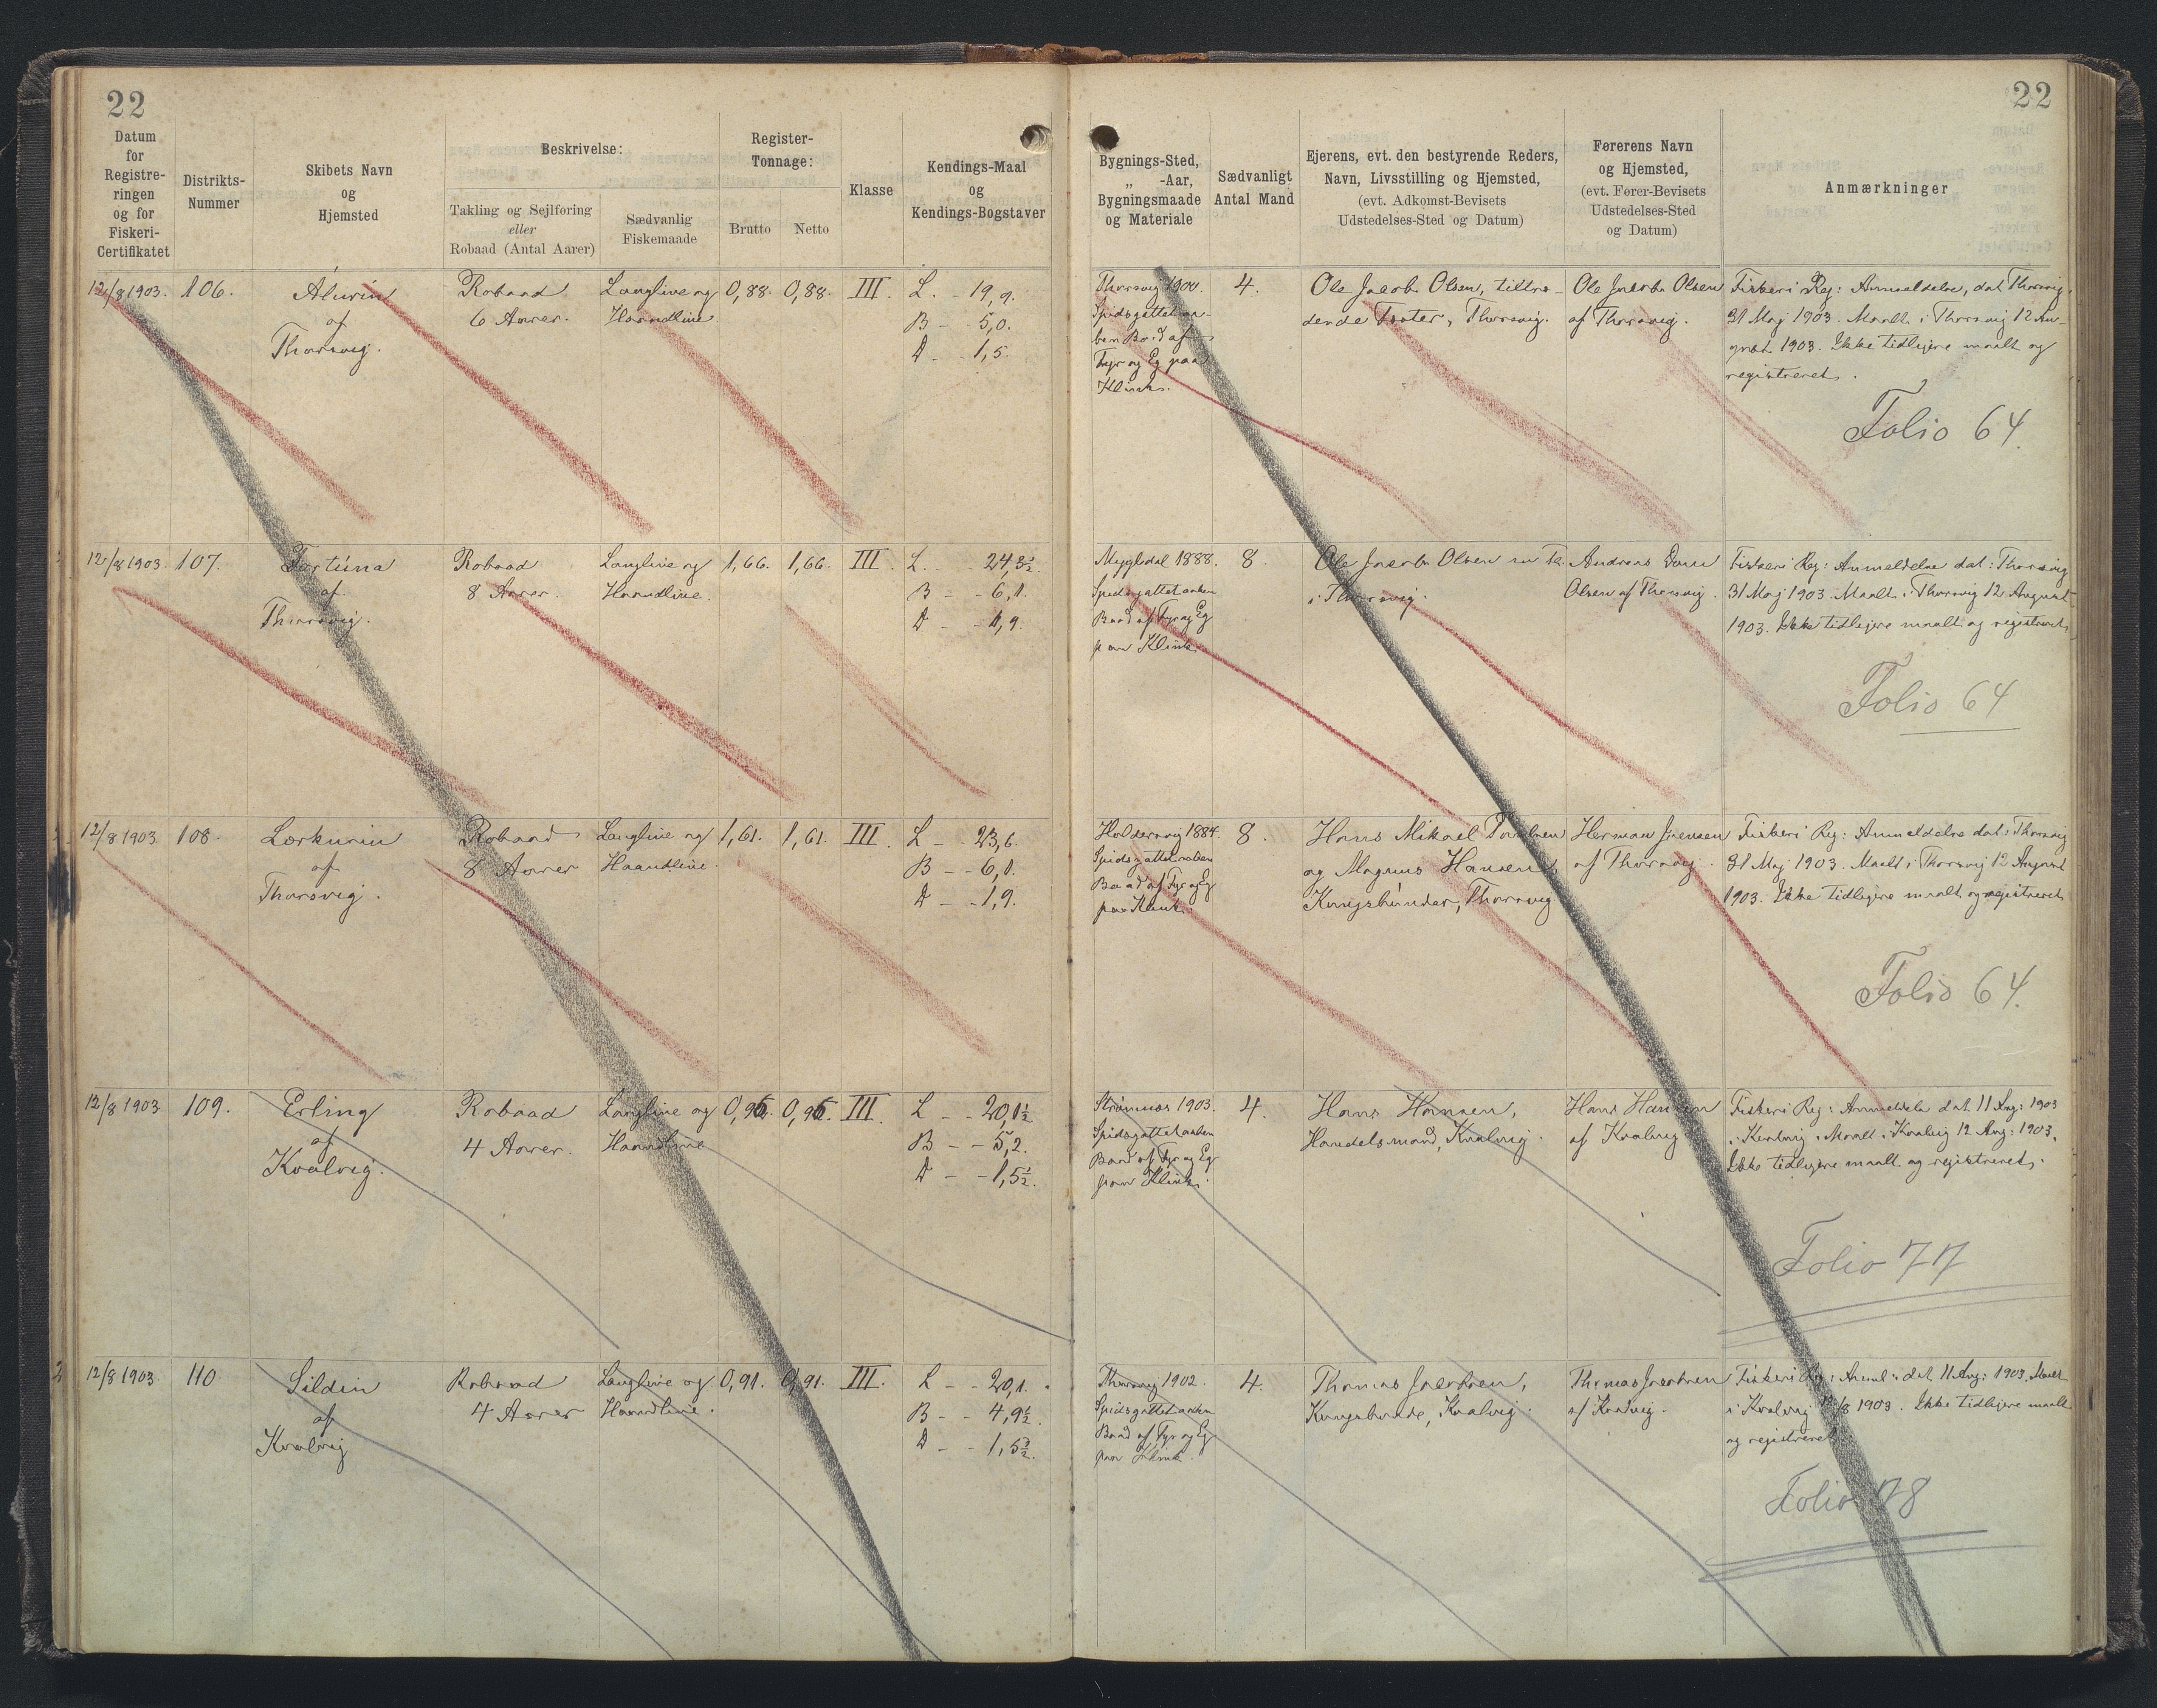 22
22
Datum
for
Registre-
ringen
og for
Fiskeri-
Certifikatet
Distrikts-
Nummer
Skibets Navn
og
Hjemsted
Beskrivelse:
Takling og Sejlføring
eller
Robaad (Antal Aarer)
Sædvanlig
Fiskemaade
Register-
Tonnage:
Brutto Netto
Klasse
Kendings-Maal
og
Kendings-Bogstaver
Bygnings-Sted,
„ -Aar,
Bygningsmaade
og Materiale
Sædvanligt
Antal Mand
Ejerens, evt. den bestyrende Reders,
Navn, Livsstilling og Hjemsted,
(evt. Adkomst-Bevisets
Udstedelses-Sted og Datum)
Førerens Navn
og Hjemsted,
(evt. Fører-Bevisets
Udstedelses-Sted
og Datum)
Anmærkninger
12/8 1903. 106.
af
Thorsvig.
Robaad
6 Aarer.
Langline og
Haandline.
0,88. 0,88. III.
L. - 19,9.
B - - 5,0.
D - - 1,5.
Thorsvig 1900.
Spidsgattet aa-
ben Baad af
Fyr og Eg paa
Klink.
4.
Ole Jacob Olsen, tiltræ-
dende Fæster, Thorsvig.
Ole Jacob Olsen
af Thorsvig.
Fiskeri Reg: Anmeldelse, dat. Thorsvig,
31 Maj 1903. Maalt i Thorsvig 12 Au-
gust 1903. Ikke tidligere maalt og
registreret.
Folio 64.
12/8 1903. 107.
Fortúna
af
Thorsvig.
Robaad
8 Aarer.
Langline og
Haandline.
1,66. 1,66. III.
L. - - 24,3½.
B - - 6,1.
D - - 1,9.
1888.
Spidsgattet aaben
Baad af Fyr og Eg
paa Klink.
8.
Ole Jacob Olsen
i Thorsvig.
Andreas
Olsen af Thorsvig.
Fiskeri Reg: Anmeldelse dat: Thorsvig
31 Maj 1903. Maalt i Thorsvig 12 August
1903. Ikke tidligere maalt og registreret.
Folio 64
12/8 1903. 108.
Lærkurin
af
Thorsvig.
Robaad
8 Aarer
Langline og
Haandline.
1,61. 1,61. III.
L - - 23,6.
B - - 6,1.
D - - 1,9.
Haldersvig 1884.
Spidsgattet aaben
Baad af Fyr og Eg
paa Klink.
8.
Hans Mikael
og Magnus Hansen,
Kongsbúnder, Thorsvig
Herman Joensen
af Thorsvig.
Fiskeri Reg: Anmeldelse dat: Thorsvig
31 Maj 1903. Maalt i Thorsvig 12 August
1903. Ikke tidligere maalt og registreret
Folio 64.
12/8 1903. 109.
Erling
af
Kvalvig.
Robaad
4 Aarer.
Langline og
Haandline
0,96. 0,96. III.
L - - 20,1½
B - - 5,2.
D - - 1,5½.
Strømnæs 1903.
Spidsgattet aaben
Baad af Fyr og Eg
paa Klink.
4.
Hans Hansen,
Handelsmand, Kvalvig.
Hans Hansen
af Kvalvig
Fiskeri Reg: Anmeldelse dat 11 Aug: 1903
i Kvalvig. Maalt i Kvalvig 12 Aug: 1903.
Ikke tidligere maalt og registreret.
Folio 77
12/8 1903. 110.
Sildin
af
Kvalvig
Robaad
4 Aarer
Langline og
Haandline.
0,91. 0,91. III.
L - - 20,1.
B - - 4,9½.
D - - 1,5½.
Thorsvig 1902.
Spidsgattet aaben
Baad af Fyr og Eg
paa Klink.
4.
Thomas Jacobsen,
Kongsbonde, Kvalvig.
Thomas Jacobsen
af Kvalvig.
Fiskeri Reg: Anmel: dat 11 Aug: 1903. Maalt
i Kvalvig 12/8 1903. Ikke tidligere maalt
og registreret.
Folio 78